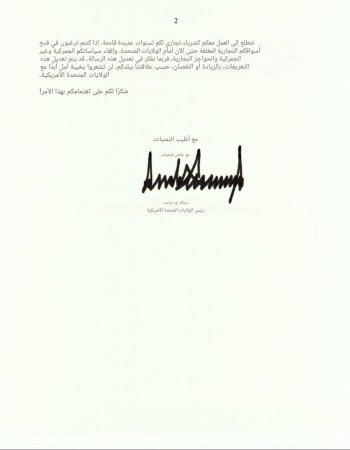 2
نتطلع إلى العمل معكم كشريك تجاري لكم لسنوات عديدة قادمة. إذا كنتم ترغبون في فتح
أسواقكم التجارية المغلقة حتى الآن أمام الولايات المتحدة، وإلغاء سياساتكم الجمركية وغير
الجمركية والحواجز التجارية، فربما نفكر في تعديل هذه الرسالة. قد يتم تعديل هذه
التعريفات، بالزيادة أو النقصان، حسب علاقتنا ببلدكم. لن تشعروا بخيبة أمل أبدًا مع
الولايات المتحدة الأمريكية.
شكرًا لكم على اهتمامكم بهذا الأمر!
مع أطيب التمنيات،
مع خالص التحيات
دونالد ج. ترامب
رئيس الولايات المتحدة الأمريكية